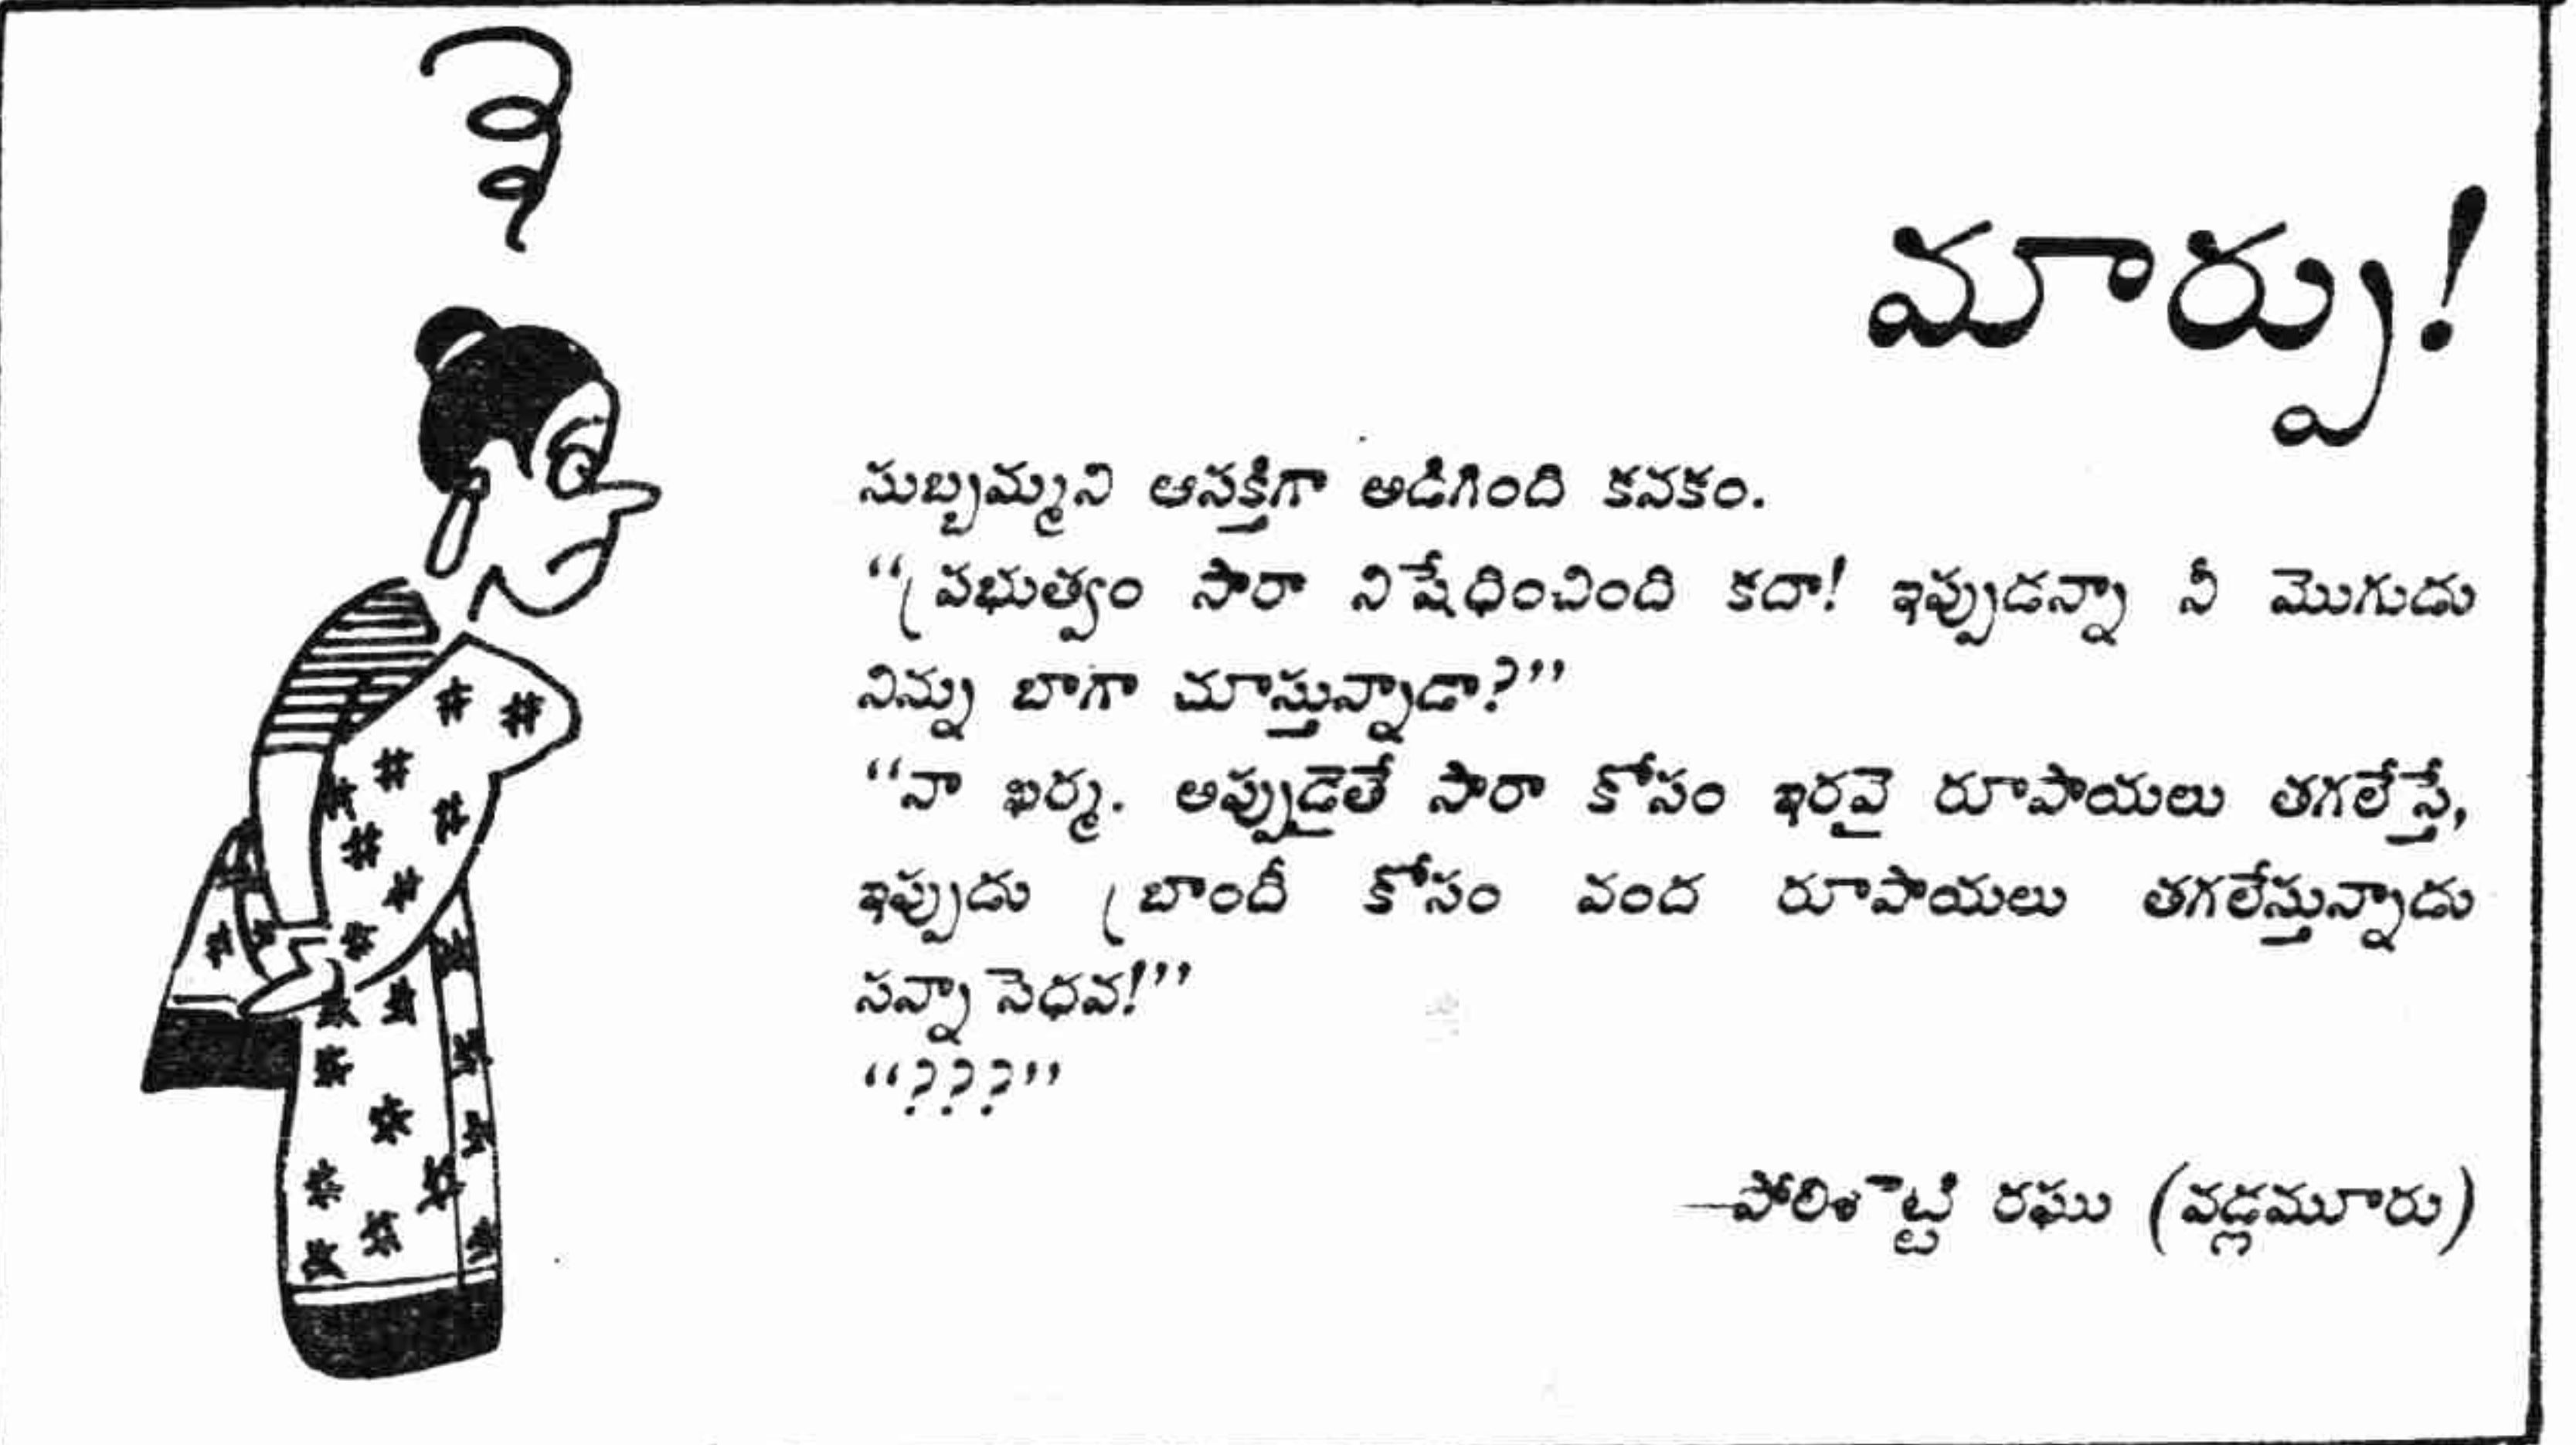 మార్పు!
సుబ్బమ్మని ఆసక్తిగా అడిగింది కనకం.
“ప్రభుత్వం సారా నిషేధించింది కదా! ఇప్పుడన్నా నీ మొగుడు
నిన్ను బాగా చూస్తున్నాడా?”
“నా ఖర్మ. అప్పుడైతే సారా కోసం ఇరవై రూపాయలు తగలేస్తే,
ఇప్పుడు బ్రాందీ కోసం వంద రూపాయలు తగలేస్తున్నాడు
సన్నాసెధవ!”
“???”
—పోలిశెట్టి రఘు (వడ్లమూరు)